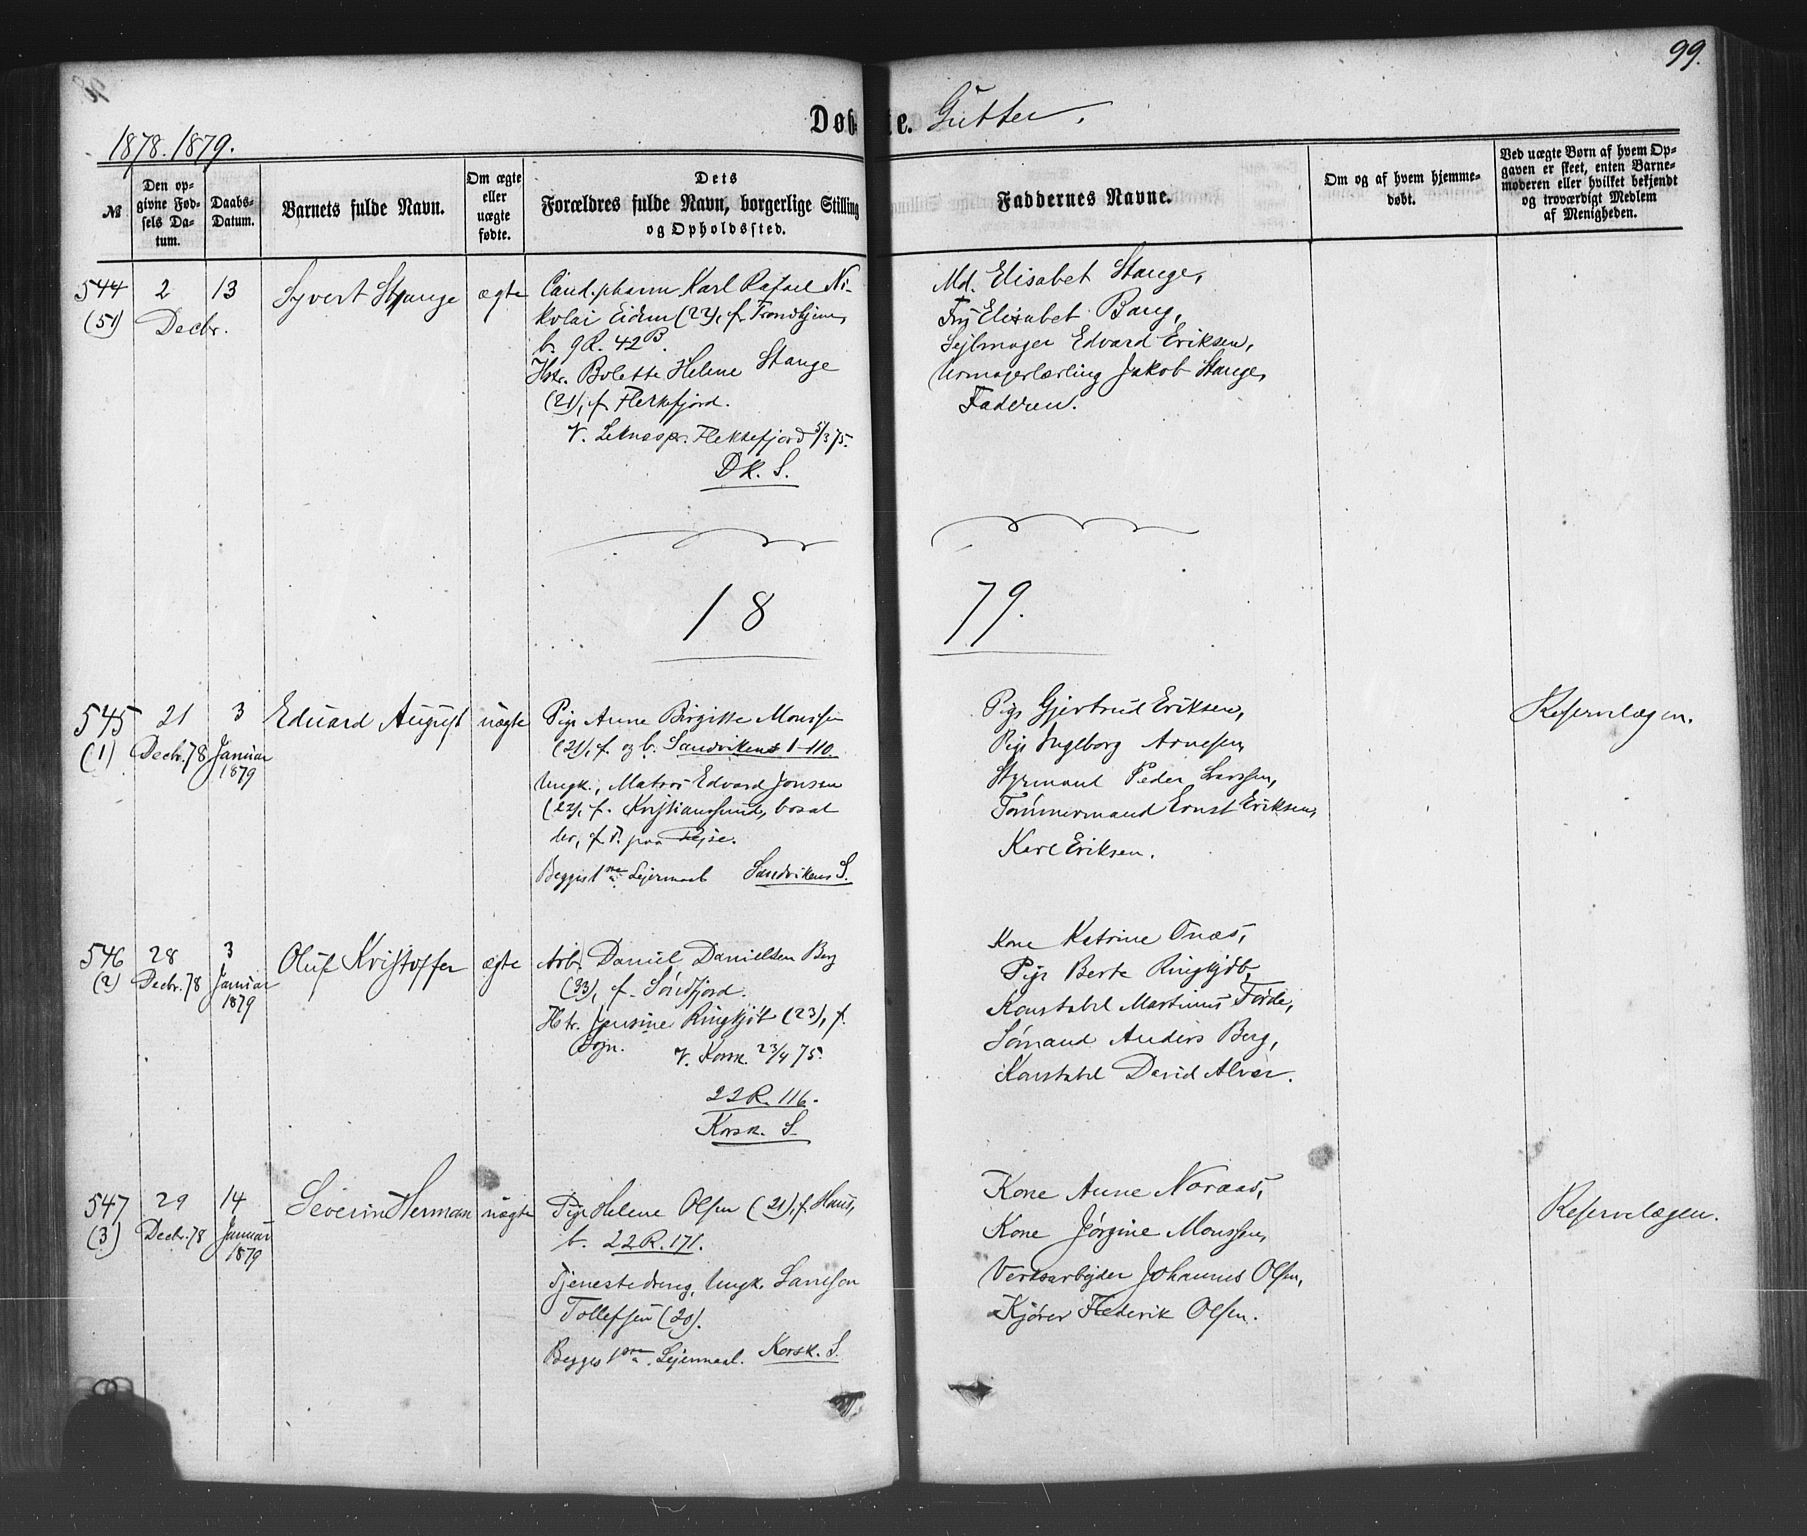 99.
Døbte. Gutter.
1878. 1879.
№
Den opgivne Fødsels Datum.
Daabs-Datum.
Barnets fulde Navn.
Om ægte eller uægte fødte.
Dets Forældres fulde Navn, borgerlige Stilling og Opholdssted.
Faddernes Navne.
Om og af hvem hjemmedøbt.
Ved uægte Børn af hvem Opgaven er skeet, enten Barnemoderen eller hvilket bekjendt og troværdigt Medlem af Menigheden.
544 2 13 Syvert Stange ægte
(51) Decbr.
Cand. pharm Karl Rafael Ni-
kolai Eidem (22), f. Trondhjem,
b. 9R. 42B.
Hstr. Bolette Helene Stange
(21), f. Flekkefjord.
V. Flekkefjord 5/3 75.
DK. S.
Md. Elisabet Stange,
Elisabet Bang,
Sejlmager Edvard Eriksen,
Urmagerlærling Jakob Stange,
Faderen.
18 79.
545 21 3 Eduard August uægte
(1) Decbr. 78 Januar
1879
Pige Anne Birgitte Monssen
(21), f. og b. Sandvikens 1-110.
Ungk., Matros Edvard Jonsen
(22), f. Kristianssund, bosat
der, f. T. paa Rejse.
Begges 1ste Lejermaal Sandvikens S.
Pige Gjertrud Eriksen,
Pige Ingeborg Arnesen,
Styrmand Peder Larssen,
Tømmermand Ernst Eriksen,
Karl Eriksen.
Reservelægen.
546 28 3 Oluf Kristoffer ægte
(2) Decbr. 78 Januar
1879
Arb. Daniel Danielsen Berg
(33), f. Søndfjord.
Hstr. Jensine Ringkjøb (23), f.
Sogn. V. Korsk. 23/4 75.
22R. 116.
Korsk. S.
Kone Katrine Onæs,
Pige Berte Ringkjøb,
Konstabel Martinus Førde,
Sømand Anders Berg,
Konstabel David Alver.
547 29 14 Severin Herman uægte
(3) Decbr. 78 Januar
1879
Pige Helene Olsen (21), f. Haus,
b. 22R. 171.
Tjenestedreng, Ungk. Samson
Tollefsen (20).
Begges 1ste Lejermaal. Korsk. S.
Kone Anne Noraas,
Kone Jørgine Monssen,
Verksarbejder Johannes Olsen,
Kjører Frederik Olsen.
Reservelægen.